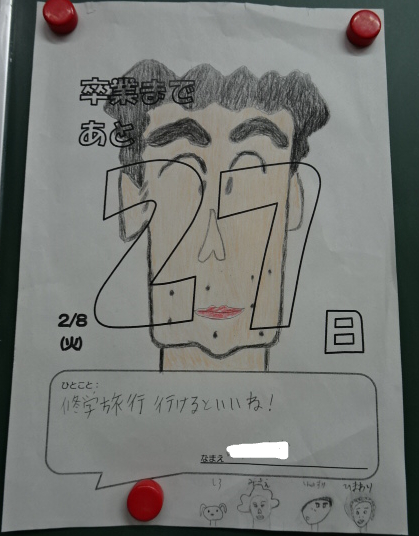 卒業まで
あと
27
日
2/8
(火)
ひとこと:
修学旅行 行けるといいね!
なまえ
みさえ
ひまわり